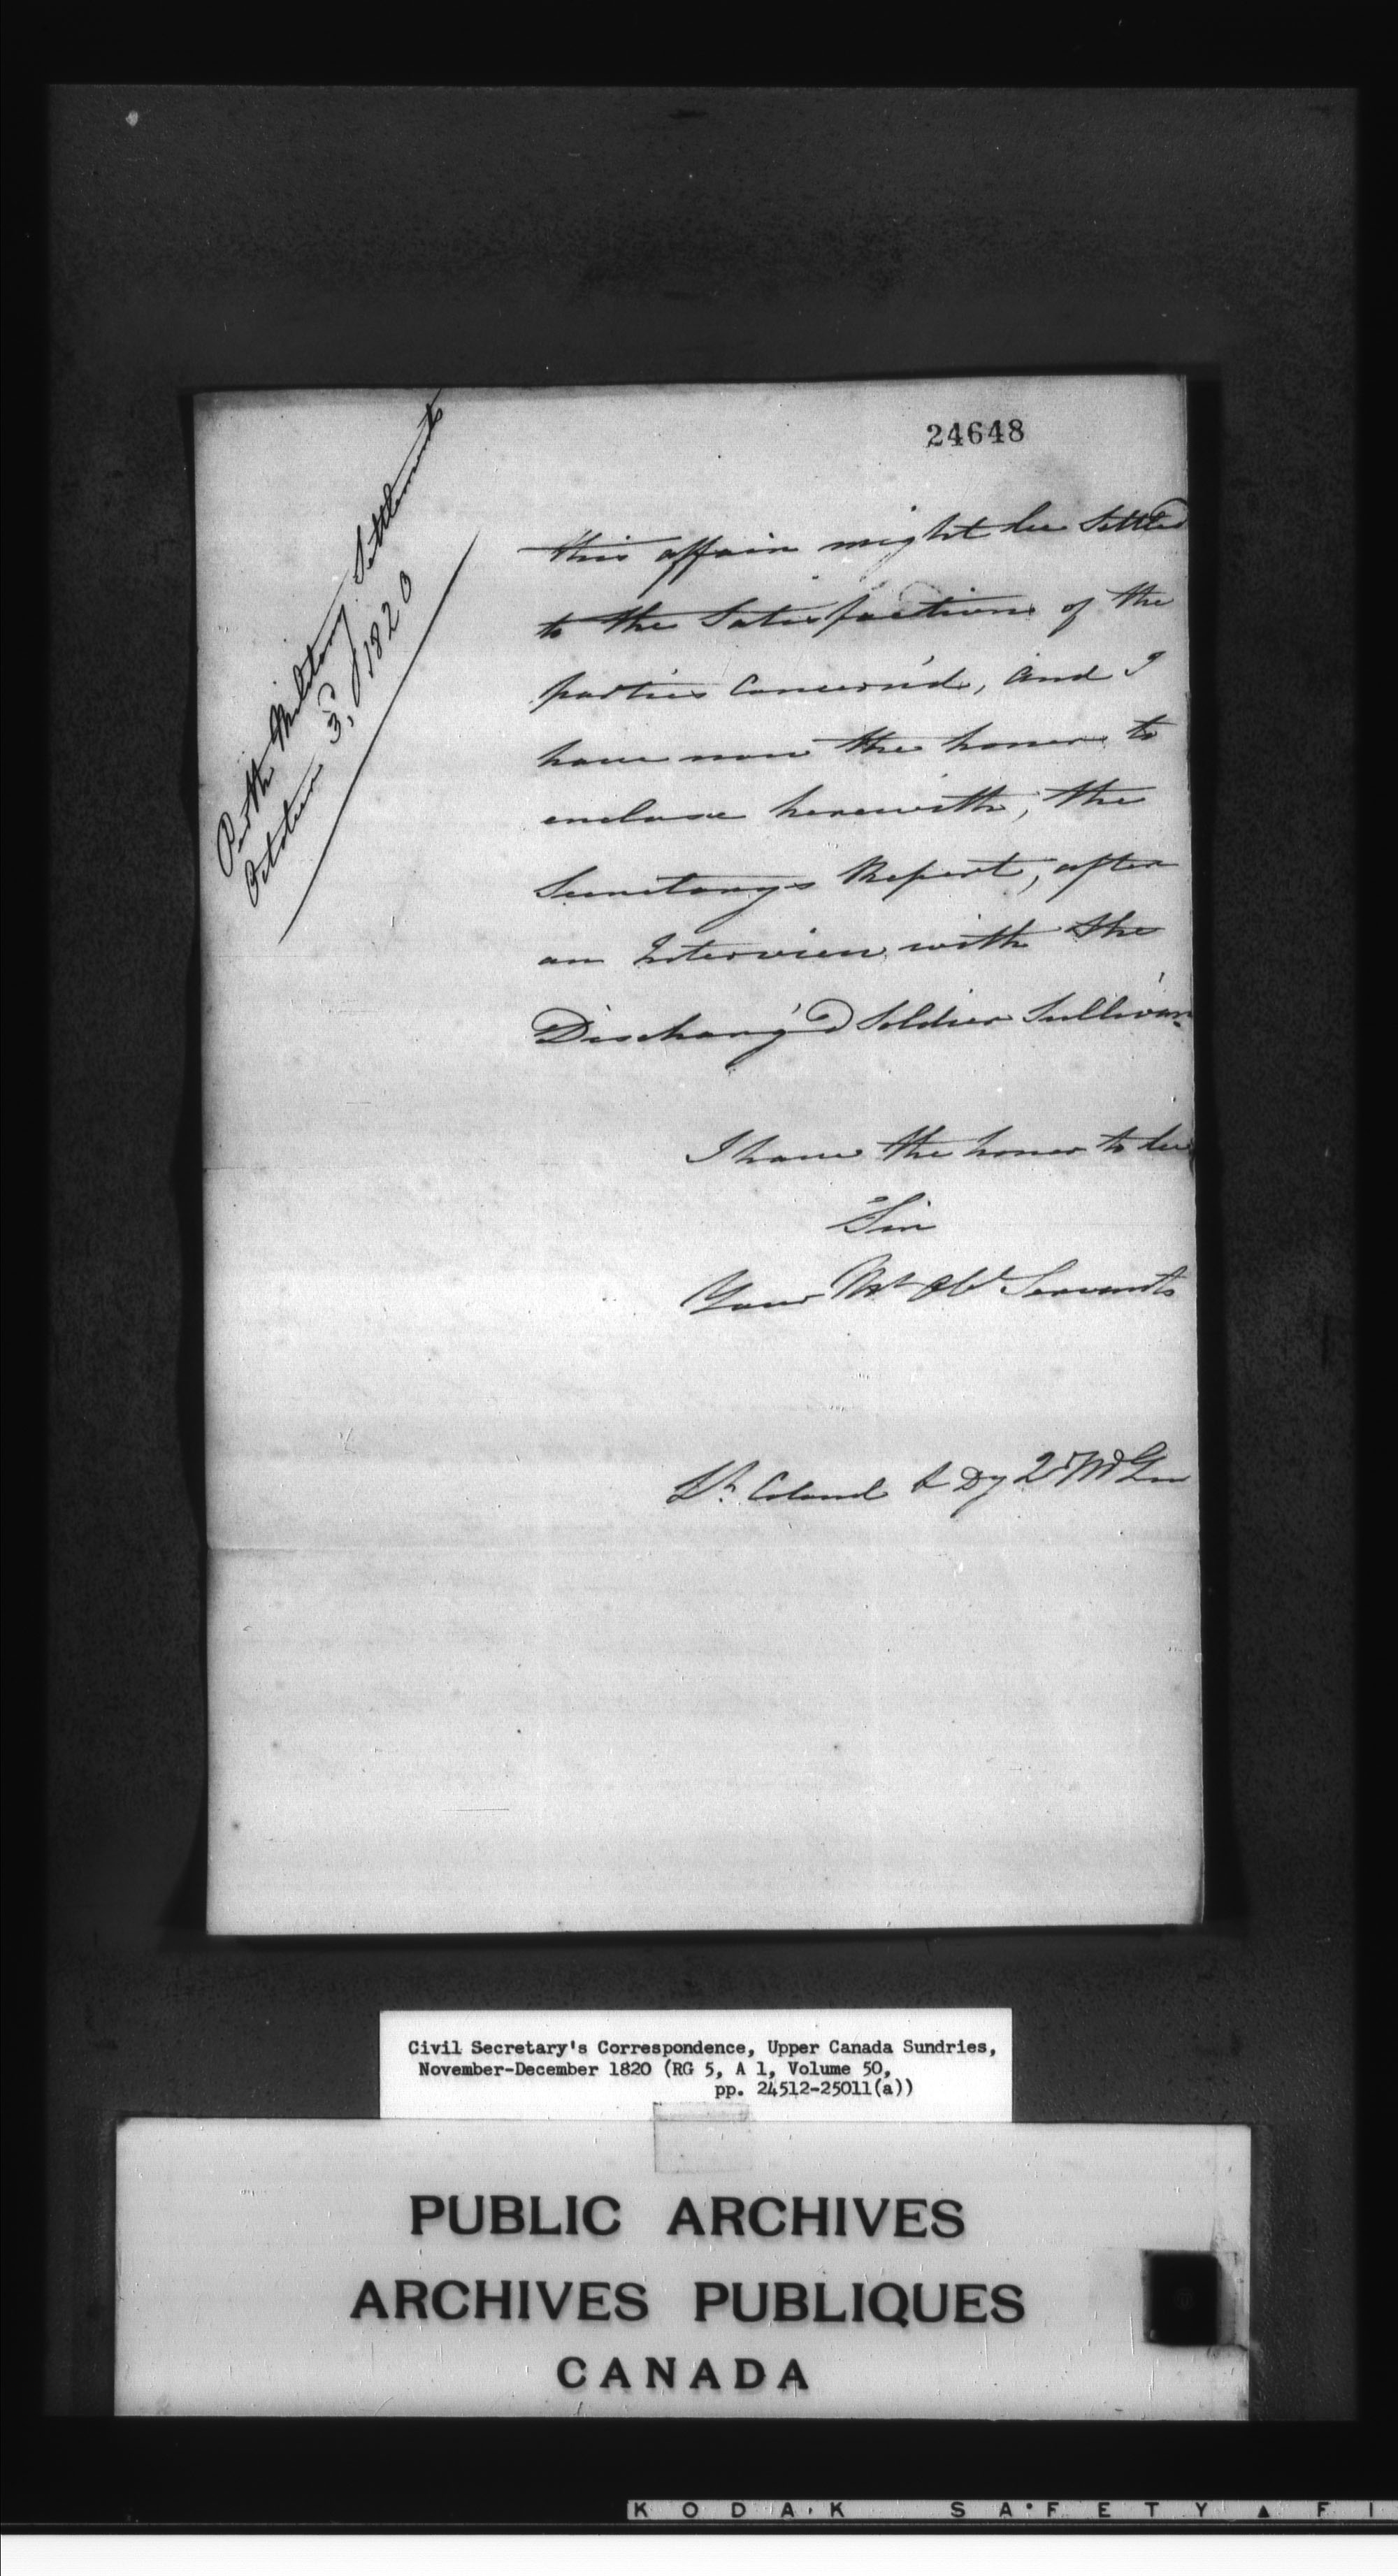 24648
Perth Military Settlements
October 3d, 1820
this affair might be Settled
to the Satisfactions of the
parties Concern'd, and I
have now the honor to
enclose herewith, the
Secretarys Report, after
an Interview with the
Discharg'd Soldier Sullivan.
I have the honor to be
Sir
Your Mt Obt Servants
Lt. Colonel & Dy Qr Mr Gen
Civil Secretary's Correspondence, Upper Canada Sundries,
November-December 1820 (RG 5, A 1, Volume 50,
pp. 24512-25011(a))
PUBLIC ARCHIVES
ARCHIVES PUBLIQUES
CANADA
KODAK SAFETY ▲ FI